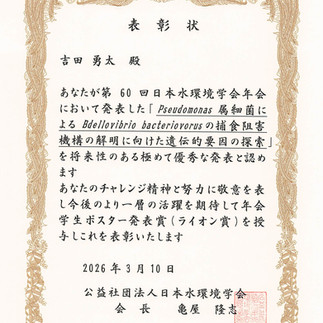 表彰状
吉田 勇太 殿
あなたが第 60 回日本水環境学会年会
において発表した「Pseudomonas 属細菌に
よる Bdellovibrio bacteriovorus の捕食阻害
機構の解明に向けた遺伝的要因の探索」
を将来性のある極めて優秀な発表と認め
ます
あなたのチャレンジ精神と努力に敬意を表
し今後のより一層の活躍を期待して年会
学生ポスター発表賞（ライオン賞）を授
与しこれを表彰いたします
2026 年 3 月 10 日
公益社団法人日本水環境学会
会 長 亀屋 隆志